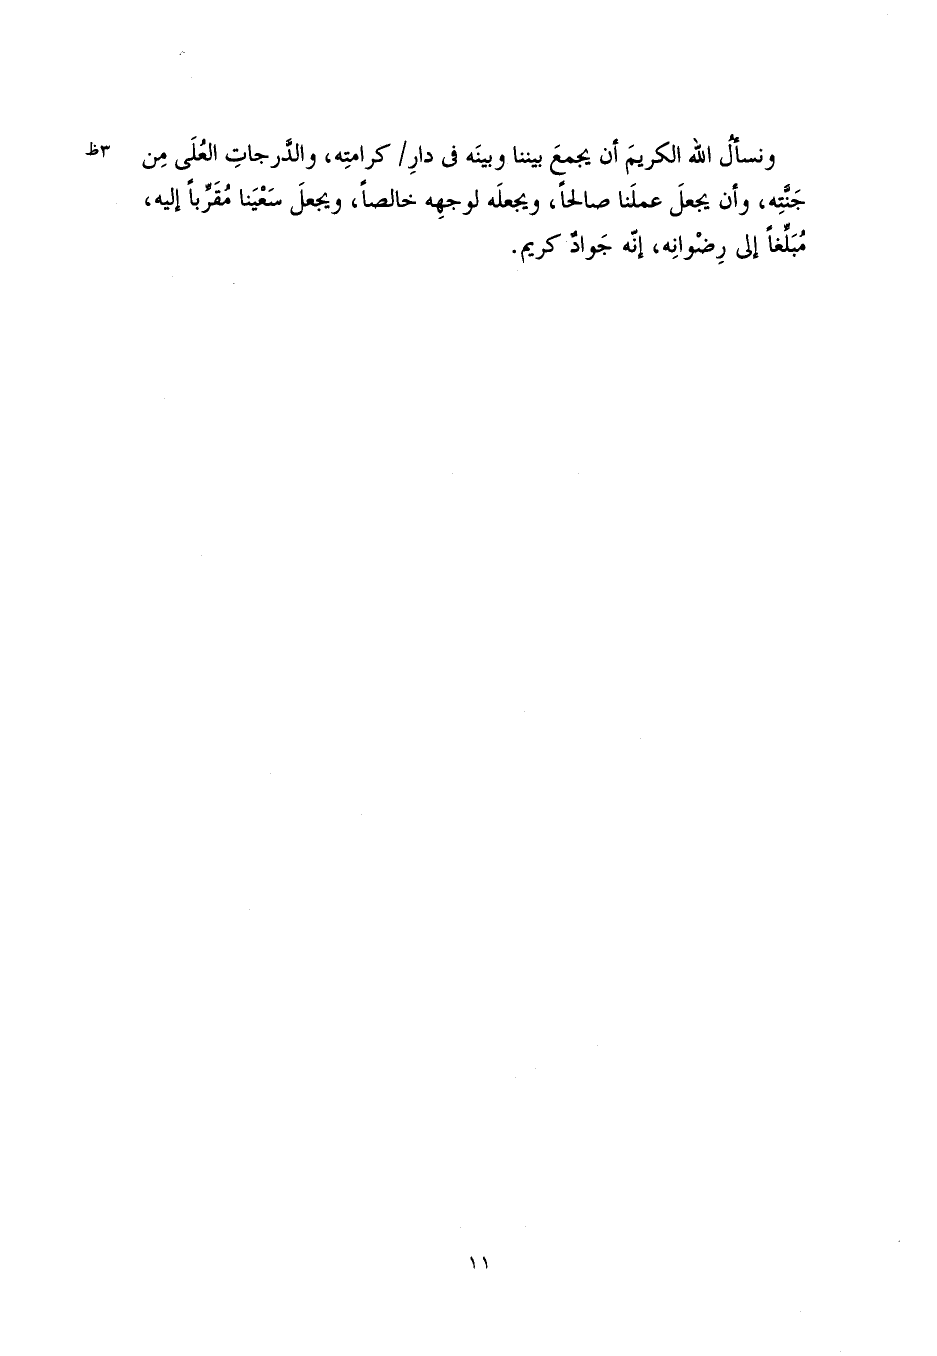 ونسأَلُ الله الكريمَ أن يجمعَ بيننا وبينَه فى دارِ/ كرامتِه، والدَّرجاتِ العُلَى مِن ٣ظ
جَنَّتِه، وأن يجعلَ عملَنا صالحاً، ويجعلَه لوجهِه خالصاً، ويجعلَ سَعْيَنا مُقَرِّباً إليه،
مُبَلِّغاً إلى رِضْوانِه، إنّه جَوادٌ كريم.
١١